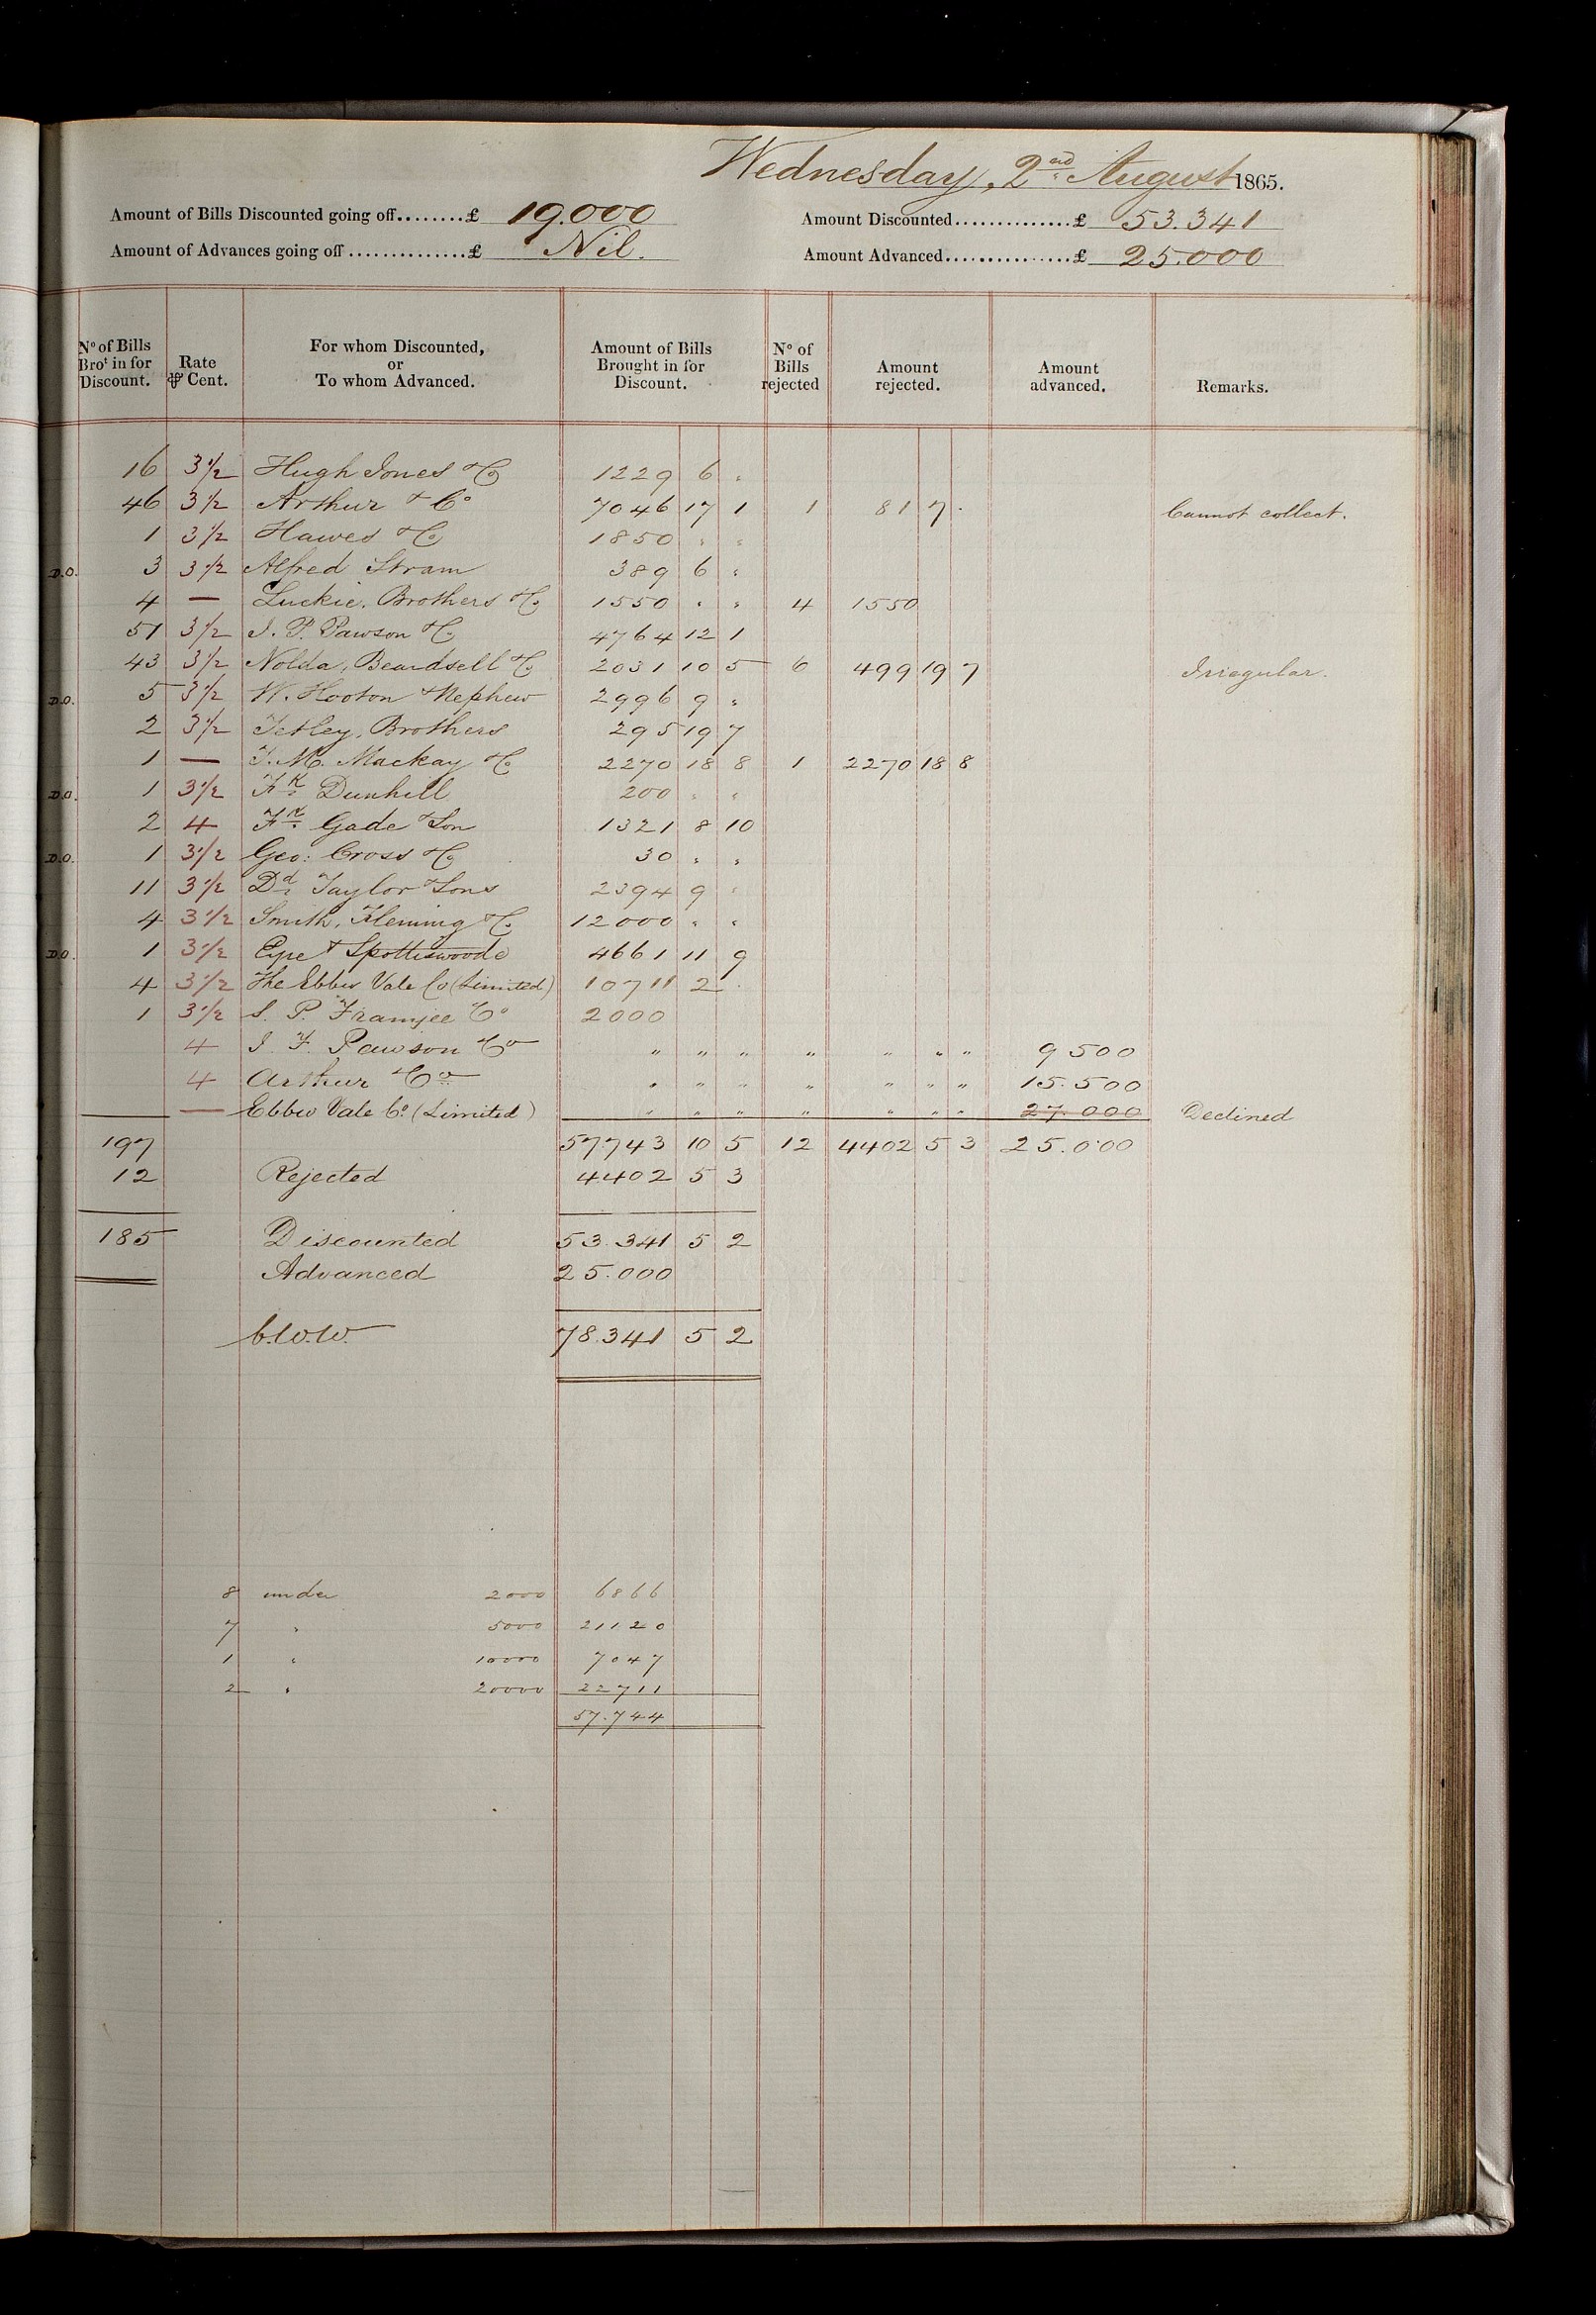 Wednesday, 2nd August 1865.
Amount of Bills Discounted going off........£ 19.000 Amount Discounted..............£ 53.341
Amount of Advances going off...............£ Nil. Amount Advanced................£ 25.000
No of Bills Brot in for Discount. Rate ⅌ Cent. For whom Discounted, or To whom Advanced. Amount of Bills Brought in for Discount. No of Bills rejected Amount rejected. Amount advanced. Remarks.
16 3 1/2 Hugh Jones & Co 1229 6 "
46 3 1/2 Arthur & Co 7046 17 1 1 81 7 . Cannot collect.
1 3 1/2 Hawes & Co 1850 " "
D.O. 3 3 1/2 Alfred Stram 389 6 "
4 — Luckie, Brothers & Co 1550 " " 4 1550
51 3 1/2 J. P. Pawson & Co 4764 12 1
43 3 1/2 Nolda, Beardsell & Co 2031 10 5 6 499 19 7 Irregular.
D.O. 5 3 1/2 W. Hooton & Nephew 2996 9 "
2 3 1/2 Tetley, Brothers 295 19 7
1 — T. M. Mackay & Co 2270 18 8 1 2270 18 8
D.O. 1 3 1/2 Fk Dunhill 200 " "
2 4 Fk Gade & Son 1321 8 10
D.O. 1 3 1/2 Geo: Cross & Co 30 " "
11 3 1/2 Dd Taylor & Sons 2394 9 "
4 3 1/2 Smith, Fleming & Co 12000 " "
D.O. 1 3 1/2 Eyre & Spottiswoode 4661 11 9
4 3 1/2 The Ebbw Vale Co (Limited) 10711 2 .
1 3 1/2 S. P. Framjee & Co 2000
4 J. F. Pawson & Co " " " " " " " 9500
4 Arthur & Co " " " " " " " 15.500
— Ebbw Vale Co. (Limited) " " " " " " " 27.000 Declined
197 57.743 10 5 12 4402 5 3 25.000
12 Rejected 4402 5 3
185 Discounted 53.341 5 2
Advanced 25.000
78.341 5 2
8 under 2000 6866
7 " 5000 21120
1 " 10000 7047
2 " 20000 22711
57.744